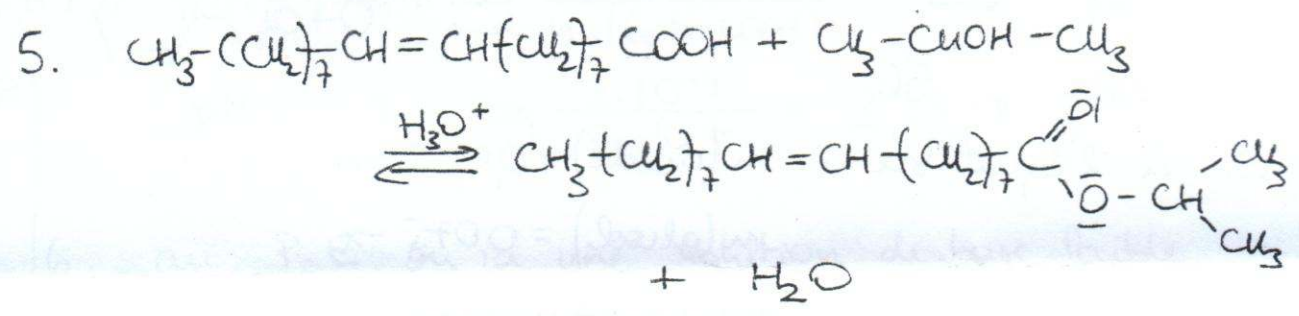 5. CH₃-(CH₂)₇-CH=CH-(CH₂)₇-COOH + CH₃-CHOH-CH₃
H₃O⁺
⇌ CH₃-(CH₂)₇-CH=CH-(CH₂)₇-C(=O)-O-CH(CH₃)-CH₃
+ H₂O